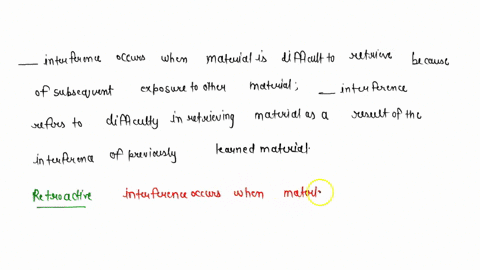 ___ interference occurs when material is difficult to retrieve because
of subsequent exposure to other material; ___ interference
refers to difficulty in retrieving material as a result of the
interference of previously learned material.
Retroactive interference occurs when materi